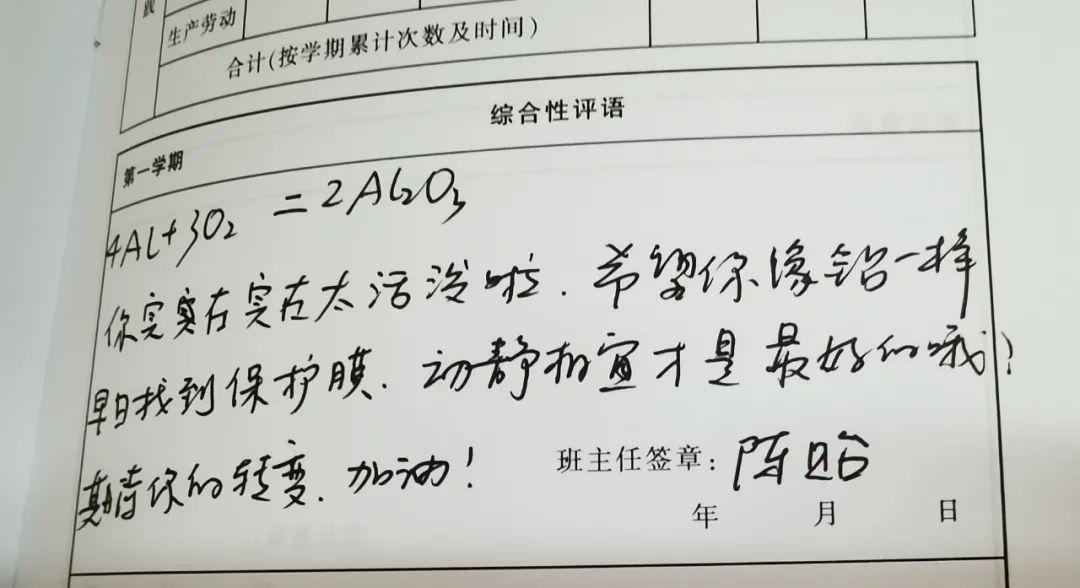 践
生产劳动
合计(按学期累计次数及时间)
综合性评语
第一学期
4Al+3O₂ = 2Al₂O₃
你实实在实在太活泼啦.希望你像铝一样
早日找到保护膜.动静相宜才是最好的哦!
期待你的转变.加油!
班主任签章:陈贻
年 月 日